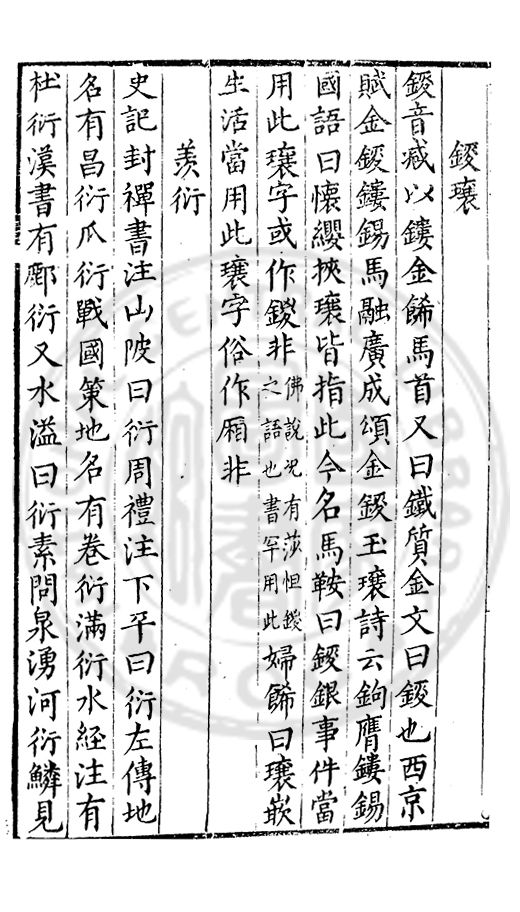 鋄瓖
鋄音减以鏤金餙馬首又曰鐵質金文曰鋄也西京
賦金鋄鏤鍚馬融廣成頌金鋄玉瓖詩云鉤膺鏤鍚
國語曰懷纓挾瓖皆指此今名馬鞍曰鋄銀事件當
用此瓖字或作鍐非佛說咒有莎怛鍐之語也書罕用此婦餙曰瓖嵌
生活當用此瓖字俗作廂非
羨衍
史記封禪書注山陂曰衍周禮注下平曰衍左傳地
名有昌衍瓜衍戰國策地名有卷衍滿衍水經注有
杜衍漢書有鄜衍又水溢曰衍素問泉湧河衍鱗見